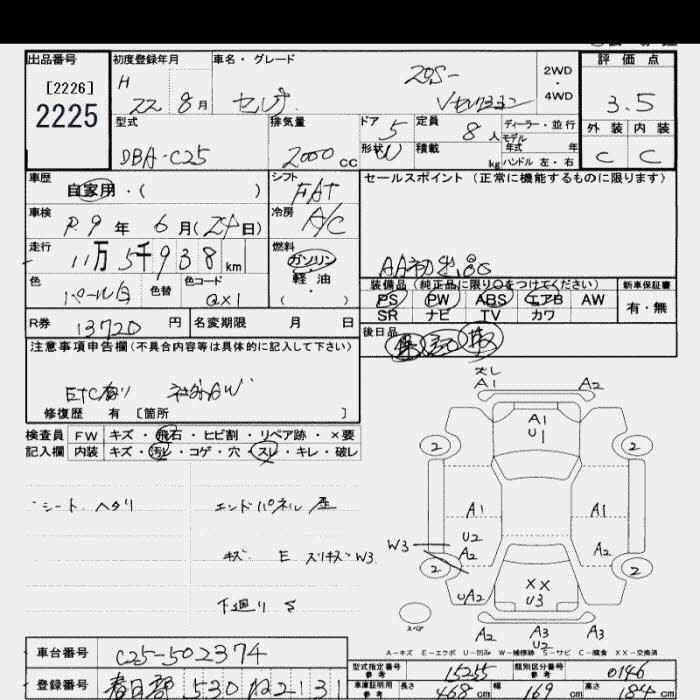 出品番号 初度登録年月 車名・グレード 評価点
[2226] H 20S- 2WD
2225 22 8月 4WD 3.5
型式 排気量 ドア 5 定員 8人 ディーラー・並行 外装 内装
DBA-C25 2000cc 形状 W 積載 kg モデル年式 年 ハンドル 左・右 C C
車歴 自家用・( ) シフト FAT セールスポイント (正常に機能するものに限ります)
車検 R9年 6月(24日) 冷房 A/C
走行 11万5千938km 燃料 ガソリン 軽油・( ) AA初出品
色 パール白 色替 色コード QX1 装備品 (純正品に限り○をつけてください) 新車保証書
PS PW ABS エアB AW 有・無
SR ナビ TV カワ
R券 13720円 名変期限 月 日 後日品 記 取
注意事項申告欄(不具合内容等は具体的に記入して下さい)
ETC有り 社外AW
修復歴 有 [箇所 ]
検査員 FW キズ・飛石・ヒビ割・リペア跡・×要
記入欄 内装 キズ・汚レ・コゲ・穴・スレ・キレ・破レ
シート ヘタリ エンドパネル 歪
キズ E スリキズ W3
下廻り S
A1 A2
A1
U1
2 2
A1 A1
U2
W3 A2 A2
2 2
UA2 XX
U3
スペア
A2 A3 A3
U2
A-キズ E-エクボ U-凹み W-補修跡 S-サビ C-腐食 XX-交換済
車台番号 C25-502374 型式指定番号 参考 15255 類別区分番号 参考 0146
登録番号 春日部 530 車庫証明用 参考 長さ 468cm 幅 169cm 高さ 184cm